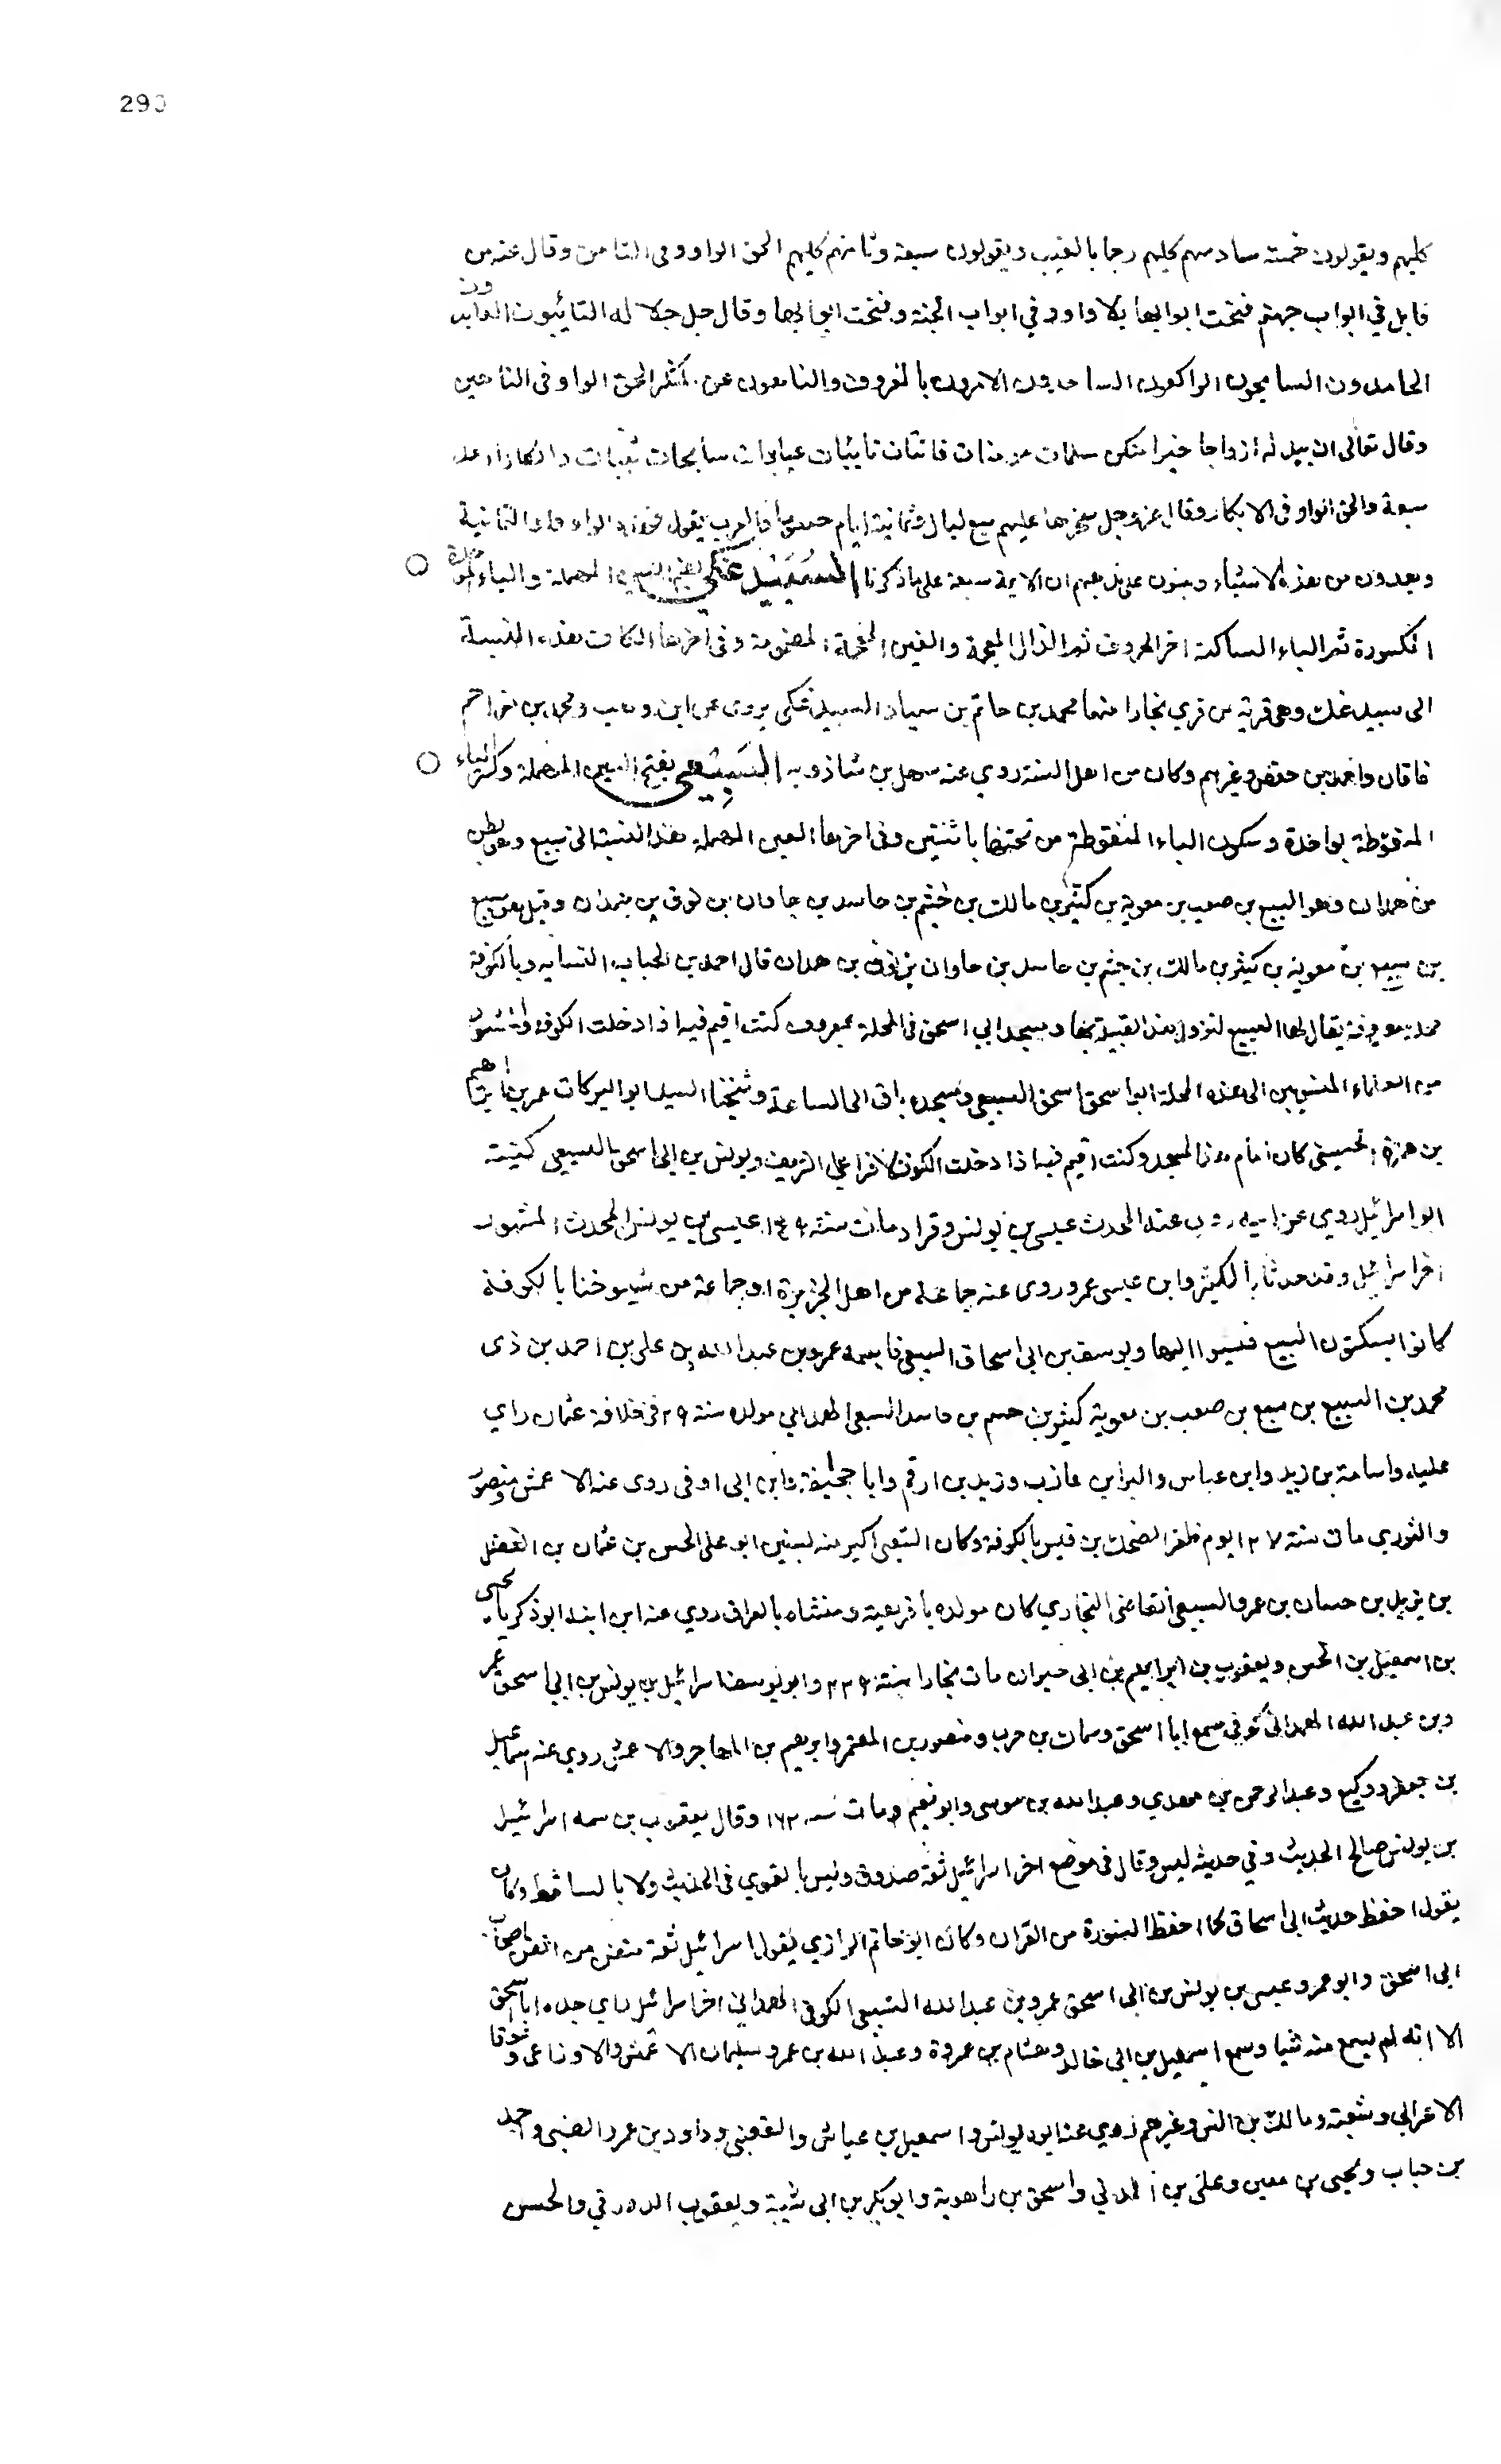 290
كلبهم ويقولون خمسة سادسهم كلبهم رجما بالغيب ويقولون سبعة وثامنهم كلبهم الحق الواو وفى الثامن وقال عنه من
قابل في ابواب جهنم فتحت ابوابها بلا واو وفي ابواب الجنة وفتحت ابوابها وقال جل جلاله التائبون العابدون
الحامدون السايحون الراكعون الساجدون الامرون بالمعروف والناهون عن المنكر الحق الواو فى الثامن
وقال تعالى ان يبدله ازواجا خيرا منكن مسلمات مومنات قانتات تائبات عابدات سايحات ثيبات وابكارا
سبعة والحق الواو فى الابكار وقال عز وجل سخرها عليهم سبع ليال وثمانية ايام حسوما فالعرب يقول هذه الواو واو الثمانية
ويعدون من هذه الاشياء ويبنون على مذهبهم ان الايمة سبعة على ما ذكرنا السبيذغكي بفتح السين المهملة والباء
المكسورة ثم الياء الساكنة اخر الحروف ثم الذال المعجمة والغين المعجمة المضمومة وفى اخرها الكاف هذه النسبة
الى سبيذغك وهى قرية من قرى بخارا منها محمد بن حاتم بن السبيذغكى يروى عن ابن وهب ومحمد بن مزاحم
واحمد بن حفص وغيرهم وكان من اهل السنة روي عنه سهل بن شاذويه السبيعي بفتح السين المهملة وكسر الباء
المنقوطة بواحدة وسكون الياء المنقوطة من تحتها باثنتين وفى اخرها العين المهملة هذه النسبة الى سبيع وهو بطن
من همدان وهو السبيع بن صعب بن معوية بن كثير بن مالك بن جشم بن حاسد بن جاوان بن نوف بن همدان وقيل هو سبيع
بن سبيع بن معوية بن كثير بن مالك بن جشم بن حاسد بن حاوان بن نوف بن همدان قال احمد بن الحباب النسابه وبالكوفة
محلة معروفة يقال لها السبيع لنزول هذه القبيلة بها ومسجد ابي اسحق فى المحلة معروف كنت اقيم فيه اذا دخلت الكوفة والمشهور
من العلماء المنتسبين الى هذه المحلة ابو اسحق السبيعي ومسجده باق الى الساعة وشيخنا السيد ابو البركات عمر بن ابراهيم
بن حمزة الحسينى كان امام هذا المسجد وكنت اقيم فيه اذا دخلت الكوفة لاقرا على الشريف ويونس بن ابي اسحق السبيعى كنيته
ابو اسرائيل روي عن ابيه روي عنه المحدث عيسى بن يونس ومات سنة ١٤٩ عيسى بن يونس المحدث المشهور
اخر اسرائيل وقد حدثا بالكثير وابن عيسى عمرو روى عنه جماعة من اهل الجزيرة وجماعة من شيوخنا بالكوفة
كانوا يسكنون السبيع فنسبوا اليها ويوسف بن ابى اسحاق السبيعى فاسمه عمرو بن عبد الله بن على بن احمد بن ذى
محمد بن السبيع بن سبيع بن صعب بن معوية كثير بن جشم بن حاسد السبعى الهمدانى مولده سنة ٢٩ فى خلافة عثمان راي
عليا واسامة بن زيد وابن عباس والبرا بن عازب وزيد بن ارقم وابا جحيفة وابن ابى اوفى روى عنه الاعمش ومنصور
والثوري مات سنة ١٢٧ يوم ظفر الضحاك بن قيس بالكوفة وكان الشعبى اكبر منه بسنتين ابو على الحسن بن عثمان بن الفضل
بن يزيد بن حسان بن عمرو السبيعي القاضى البخاري كان مولده بافريقية ومنشاه بالعراق روي عنه ابن ابنه ابو زكريا يحيى
بن اسمعيل بن الحسن ويعقوب بن ابراهيم بن ابى حيوان مات بخارا سنة ٢٣٩ وابو يوسف اسرائيل بن يونس بن ابى اسحق عمر
وبن عبد الله الهمدانى كوفى سمع ابا اسحق وسماك بن حرب ومنصور بن المعتمر وابرهيم بن المهاجر والاعمش روي عنه اسماعيل
بن جعفر ووكيع وعبد الرحمن بن مهدي وعبد الله بن موسى وابو نعيم ومات سنه ١٦٢ وقال يعقوب بن سمه اسرائيل
بن يونس صالح الحديث وفي حديثه لين وقال فى موضع اخر اسرائيل ثقة صدوق وليس بالقوي فى الحديث ولا بالساقط وكان
يقول احفظ حديث ابى اسحاق كما احفظ السورة من القران وكان ابو حاتم الرازي يقول اسرائيل ثقة متقن من اتقن اصحاب
ابى اسحق وابو عمرو عيسى بن يونس بن ابى اسحق عمرو بن عبد الله السبيعى الكوفى الهمداني اخر اسرائيل راي جده ابا اسحق
الا انه لم يسمع منه شيا وسمع اسمعيل بن ابى خالد وهشام بن عمروة وعبد الله بن عمر وسليمان الاعمش والاوزاعى وعوفا
الاعرابى وشعبة ومالك بن انس وغيرهم روي عنه ابوه يونس واسمعيل بن عياش والقعنبى وداود بن عمرو الضبى واحمد
بن حباب ويحيى بن معين وعلى بن المدني واسحق بن راهوية وابو بكر بن ابى شيبة ويعقوب الدورقى والحسن